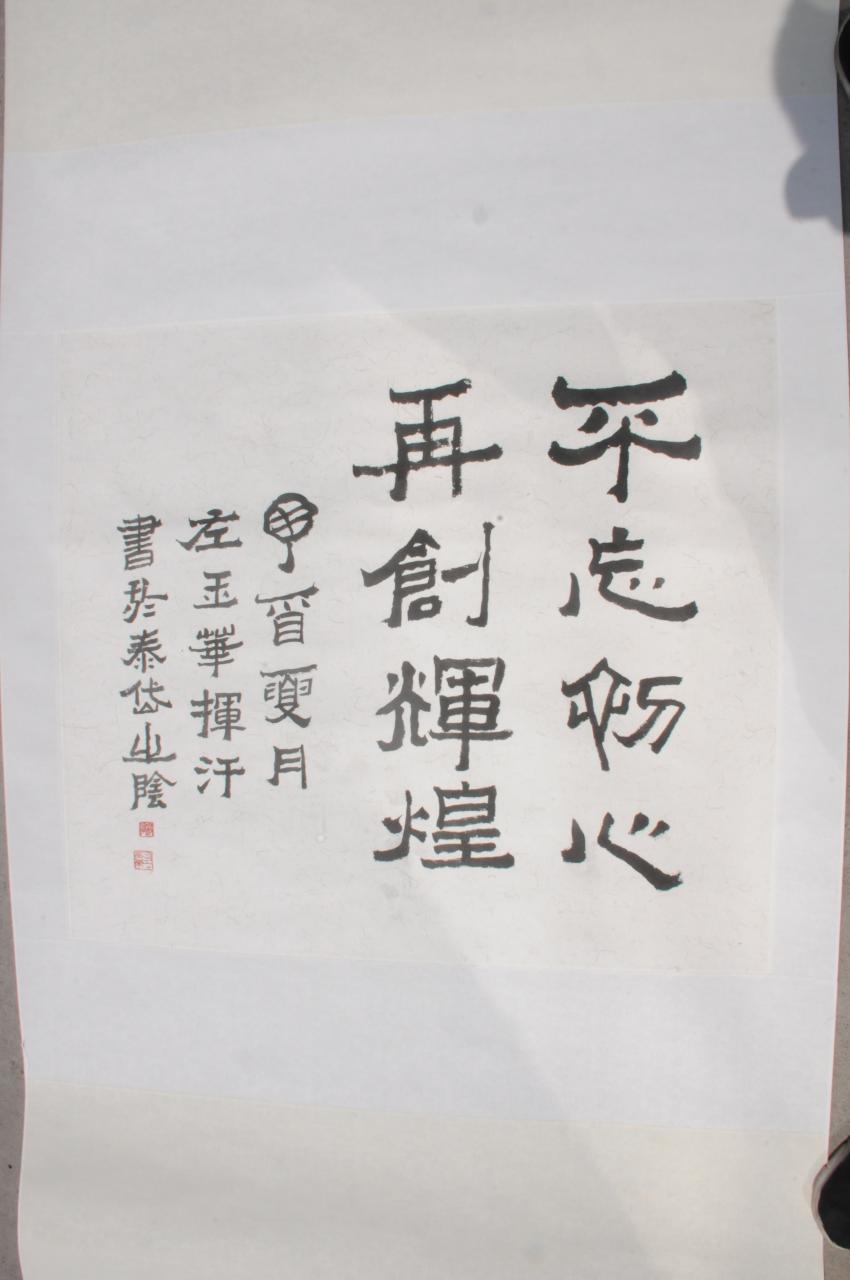 不忘初心
再創輝煌
甲首夏月
左玉華揮汗
書於泰岱之陰